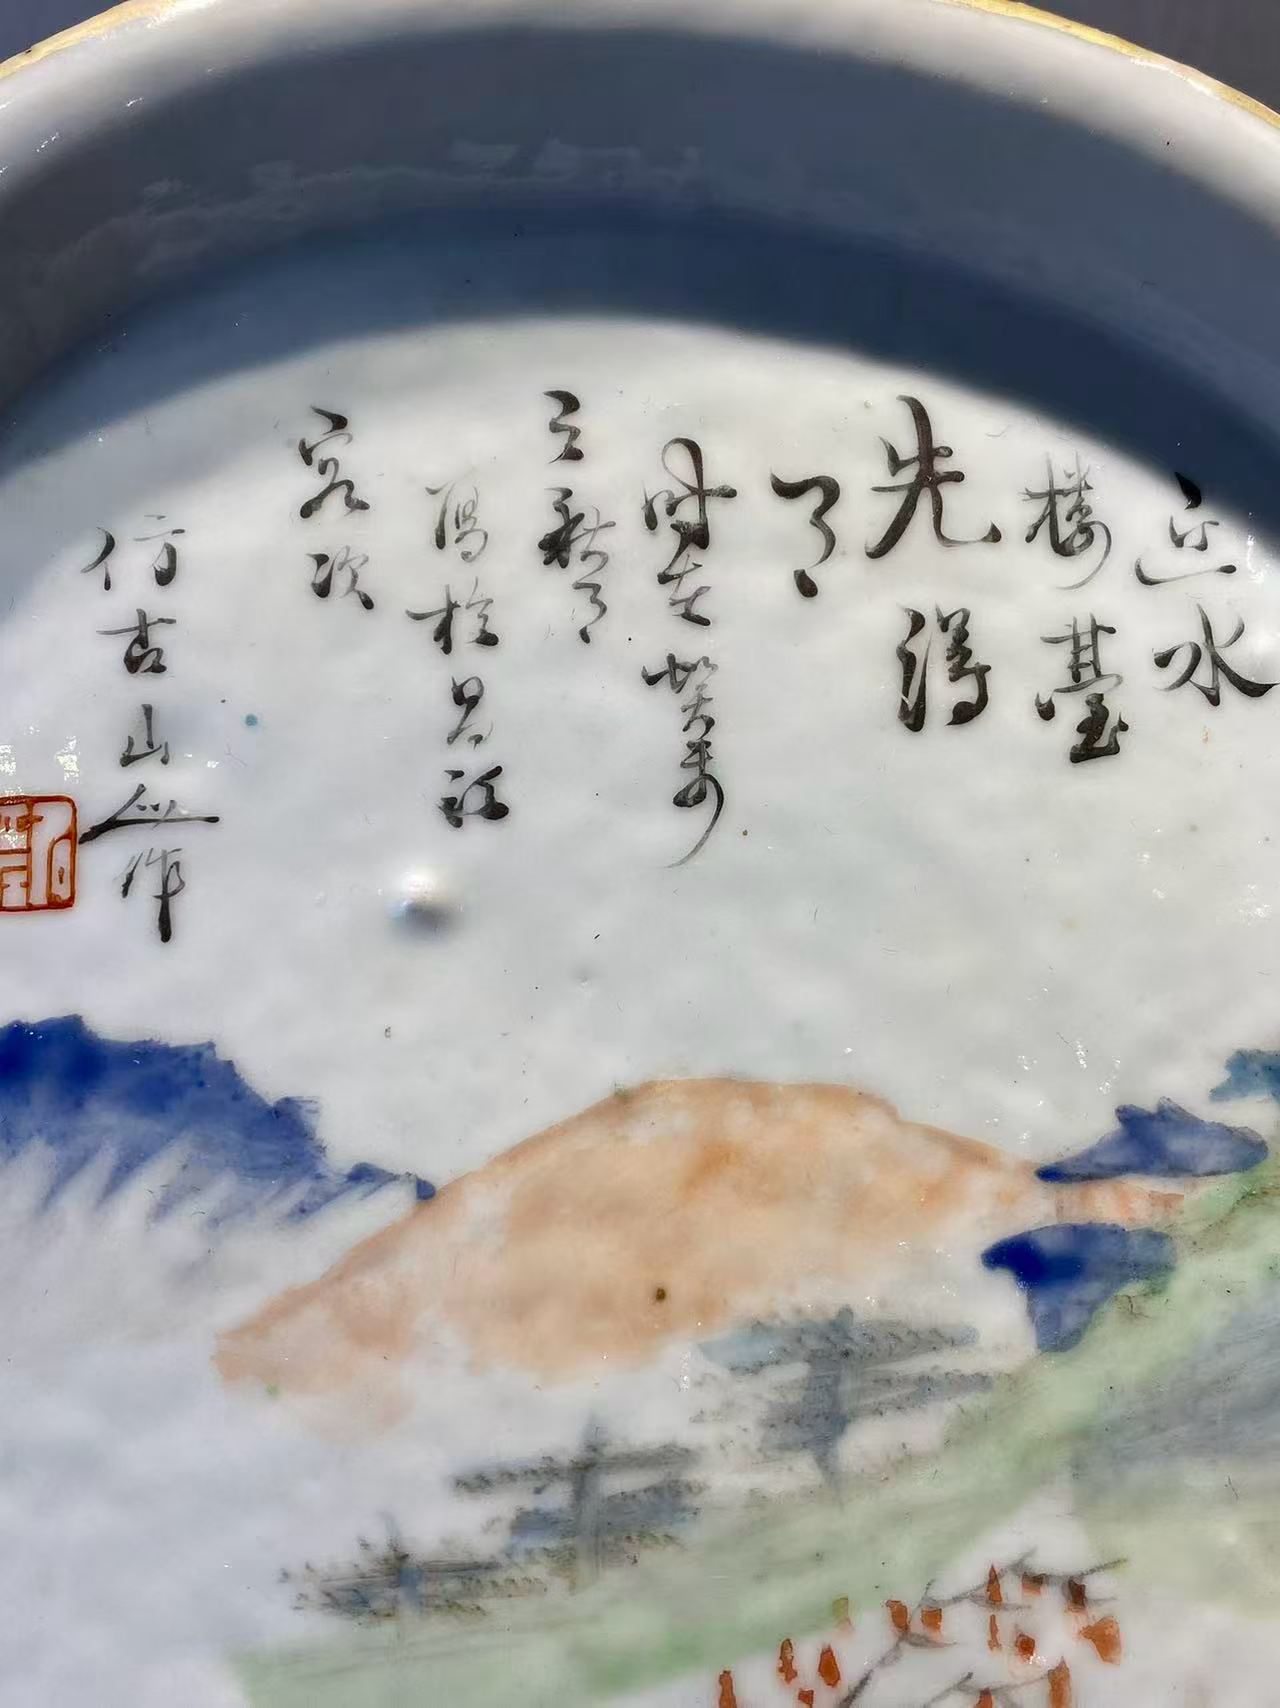 近水
楼臺
先得
了
时在癸未
之秋月
寫於昌江
客次
仿古山人作